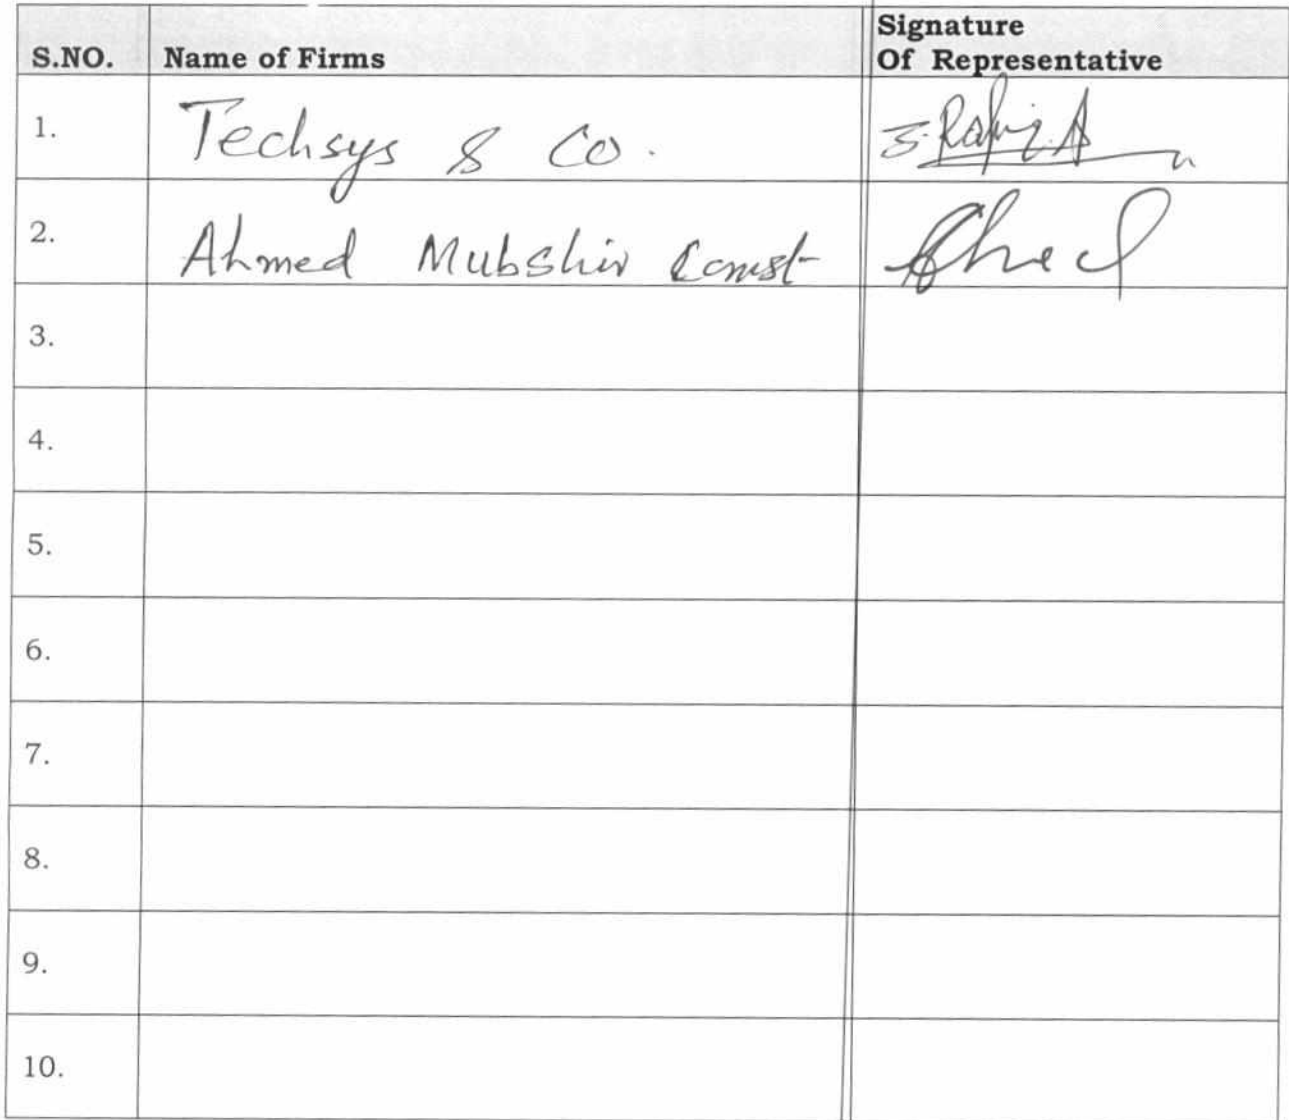 S.NO. Name of Firms Signature Of Representative
1. Techsys & Co.
2. Ahmed Mubshir Const
3.
4.
5.
6.
7.
8.
9.
10.